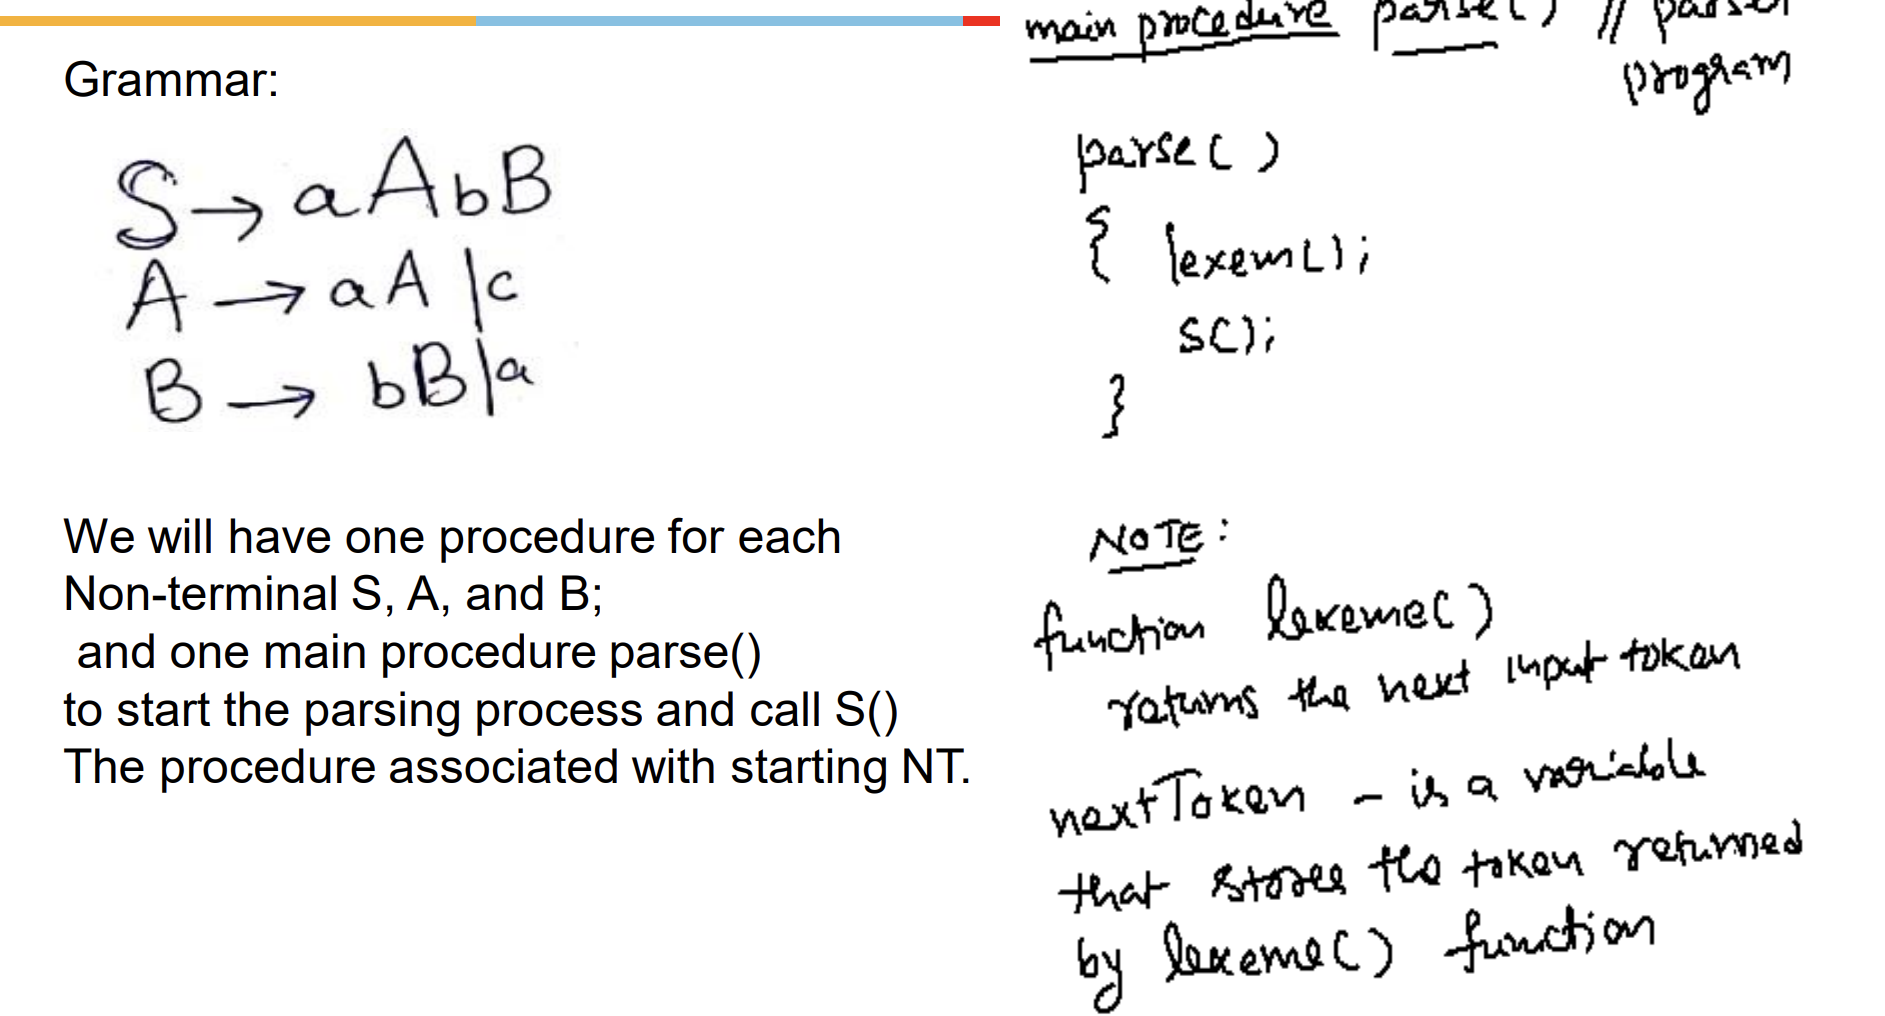 Grammar:
S → aAbB
A → aA | c
B → bB | a
We will have one procedure for each
Non-terminal S, A, and B;
and one main procedure parse()
to start the parsing process and call S()
The procedure associated with starting NT.
main procedure parse() // parser
program
parse()
{ lexem();
S();
}
NOTE:
function lexeme()
returns the next input token
nextToken – is a variable
that stores the token returned
by lexeme() function